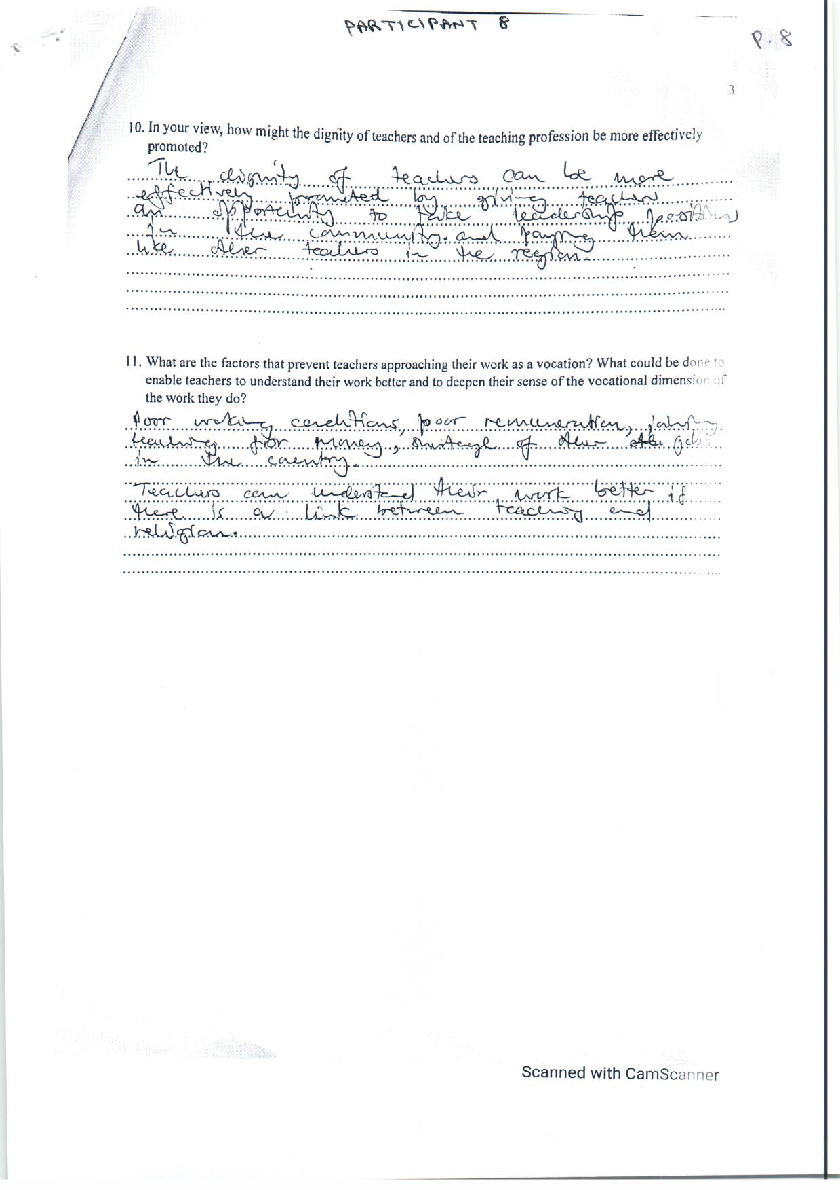 PARTICIPANT 8
P. 8
3
10. In your view, how might the dignity of teachers and of the teaching profession be more effectively
promoted?
The dignity of teachers can be more
effectively promoted by giving teachers
an opportunity to take leadership
in the community and paying them
like other teachers in the region.
11. What are the factors that prevent teachers approaching their work as a vocation? What could be done to
enable teachers to understand their work better and to deepen their sense of the vocational dimension of
the work they do?
Poor working conditions, poor remuneration,
teaching for money, of other
in the country.
Teachers can understand their work better if
there is a link between teaching and
religion.
Scanned with CamScanner